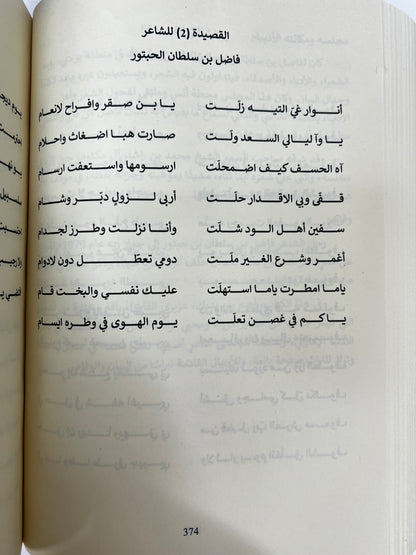 القصيدة (2) للشاعر
فاضل بن سلطان الحبتور
أنـوار غيّ التيـه زلّـت يا بـن صقر وافراح لانعام
يا وآ ليالي السعد ولّـت صارت هبا اضغاث واحلام
آه الحسف كيف اضمحلّت ارسومها واستعفت ارسام
قـفّى وبي الاقـدار حلّـت أربى لـزولٍ دبّـر وشـام
سفين أهـل الـود شـلّـت وأنـا نـزلـت وطـرز لجدام
أغمر وشرع الغير ملّـت دومـي تعطّـل دون لادوام
ياما امطرت ياما استهلّت عليك نفسي والبخت قـام
يـا كـم في غصـن تعلـت يـوم الهوى في وطره ايسام
374